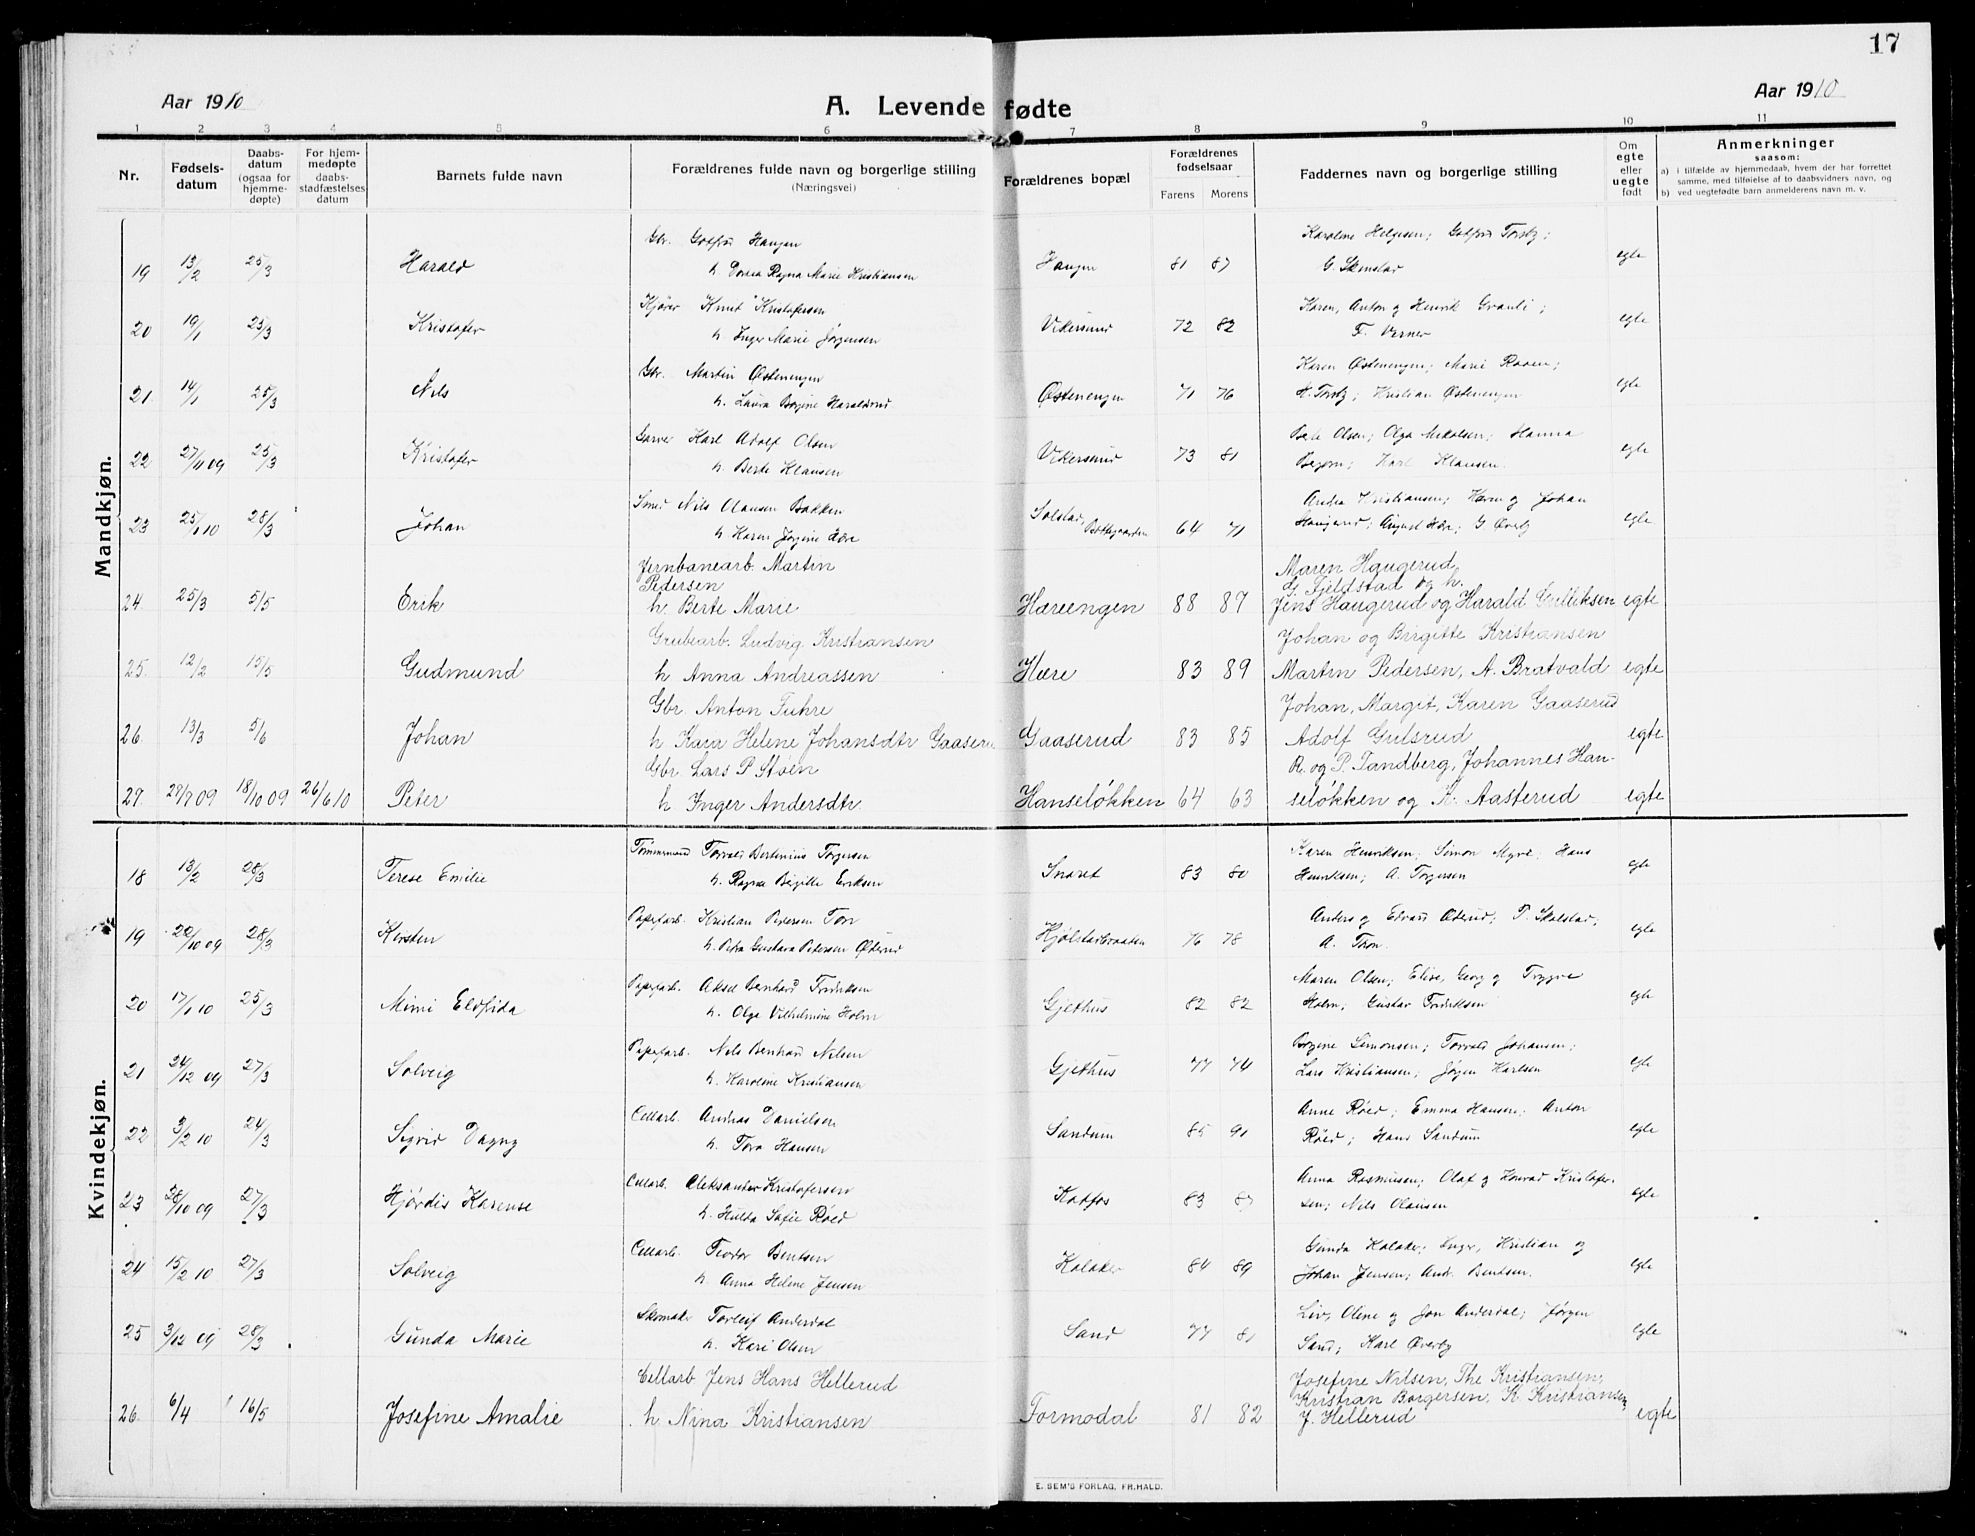 17
Aar 1910
A. Levende fødte
Aar 1910
1 2 3 4 5 6 7 8 9 10 11
Nr.
Fødsels-
datum
Daabs-
datum
(ogsaa for
hjemme-
døpte)
For hjem-
medøpte
daabs-
stadfæstelses
datum
Barnets fulde navn
Forældrenes fulde navn og borgerlige stilling
(Næringsvei)
Forældrenes bopæl
Forældrenes
fødselsaar
Farens Morens
Faddernes navn og borgerlige stilling
Om
egte
eller
uegte
født
Anmerkninger
saasom:
a) i tilfælde av hjemmedaab, hvem der har forrettet
samme, med tilføielse af to daabsvidners navn, og
b) ved uegtefødte barn anmelderens navn m. v.
Mandkjøn.
Gbr. Gotfred Haugen Karoline Helgesen; Gotfred Torsby;
19 13/2 25/3 Harald h. Ragna Marie Kristiansen Haugen 81 87 G. Skinstad egte
Kjører Knut Kristofersen Karen, Anton og Henrik Granli;
20 19/1 25/3 Kristofer h. Inger Marie Jørgensen Vikersund 72 82 F. Verner egte
Gbr. Martin Østenengen Karen Østenengen; Marie Raaen;
21. 14/1 25/3 Nils h. Laura Borgine Haraldsrud Østenengen 71 76 Kristian Østenengen egte
Garver Karl Adolf Olsen Berte Olsen; Olga Nikolsen; Hanna
22 27/11 09 25/3 Kristofer h. Berte Klausen Vikersund 73 81 Karl Klausen. egte
Smed Nils Olausen Bakken Andrea Kristiansen; Karen og Johan
23 25/1 10 28/3 Johan h. Karen Jørgine Hære Solstad, 64 71 Haugerud; August Hære; G Øverby egte
Jernbanearb. Martin Maren Haugerud,
Pedersen G. Fjeldstad og h.
24. 25/3 5/5 Erik h. Berte Marie Hæreengen 88 87 Jens Haugerud og Harald Gulliksen egte
Grubearb. Ludvig Kristiansen Johan og Birgitte Kristiansen
25. 12/2 15/5 Gudmund h Anna Andreassen Hære 83 89 Martin Pedersen, A. Bratvald egte
Gbr. Anton Fuhre Johan, Margit, Karen Gaaserud
26. 13/3 5/6 Johan h Kara Helene Johansdtr Gaaseru Gaaserud 83 85 Adolf Gulsrud egte
Gbr Lars P Støen R. og P. Tandberg, Johannes Han-
27. 27/7 09 18/10 09 26/6 10 Peter h Inger Andersdtr. Hanseløkken 64 63 seløkken og K. Aasterud egte
Kvindekjøn.
Tømmermand Torvald Bertinius Torgersen Karen Henriksen; Simon Myre; Hans
18 13/2 28/3 Terese Emilie h. Ragna Birgitte Eriksen Snaret 83 80 Henriksen; A. Torgersen egte
Papefarb. Kristian Pedersen Ton Anders og Edvard Øderud; P. Skalstad;
19 22/10 09 28/3 Kirsten h. Petra Gustava Petersen Øderud Hjølstadbraaten 76 78 A. Thon. egte
Papefarb. Aksel Bernhard Fredriksen Maren Olsen; Elise, Georg og Trygve
20 17/1 10 25/3 Mimi Elvfrida h. Olga Vilhelmine Holm Gjethus 82 82 Holm; Gustav Fredriksen egte
Papefarb. Nils Bernhard Nilsen Borgine Simonsen; Torvald Johansen;
21 24/12 09 27/3 Solveig h. Karoline Kristiansen Gjethus 77 74 Lars Kristiansen; Jørgen Karlsen egte
Cellarb. Andreas Danielsen Anne Røed; Emma Hansen; Anton
22 3/2 10 24/3 Sigrid Dagny h. Tora Hansen Sandum 85 91 Røed; Hans Sandum egte
Cellarb. Aleksander Kristofersen Anna Rasmusen; Olaf og Konrad Kristofer-
23 28/10 09 27/3 Hjørdis Karense h. Hulda Sofie Røed Katfos 83 87 sen; Nils Olausen egte
Cellarb. Teodor Bentsen Gunda Kalaker; Inger, Kristian og
24 15/2 10 27/3 Solveig h. Anna Helene Jensen Kalaker 84 89 Johan Jensen; And. Bentsen. egte
Skomaker Torleif Anderdal Liv, Olene og Jon Anderdal; Jørgen
25 3/12 09 28/3 Gunda Marie h. Kari Olsen Sand 77 81 Sand; Karl Øverby egte
Cellarb Jens Hans Hellerud Josefine Nilsen, The Kristiansen,
Kristian Borgersen, K. Kristiansen,
26. 6/4 16/5 Josefine Amalie h. Nina Kristiansen Formodal 81 82 J. Hellerud egte
E. SEM'S FORLAG, FR.HALD.